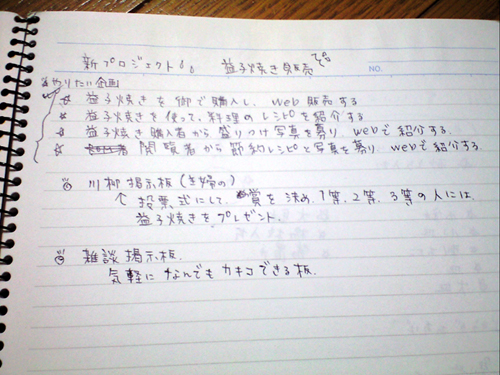 新プロジェクト。。 益子焼き販売 でそ
NO.
やりたい企画
☆ 益子焼きを卸で購入し、web販売する
☆ 益子焼きを使って、料理のレシピを紹介する
☆ 益子焼き購入者から盛りつけ写真を募り、webで紹介する。
☆ 閲覧者から節約レシピと写真を募り、webで紹介する。
川柳掲示板(主婦の)
↑ 投票式にして、賞を決め、1等、2等、3等の人には
益子焼きをプレゼント。
雑談掲示板。
気軽になんでもカキコできる板。